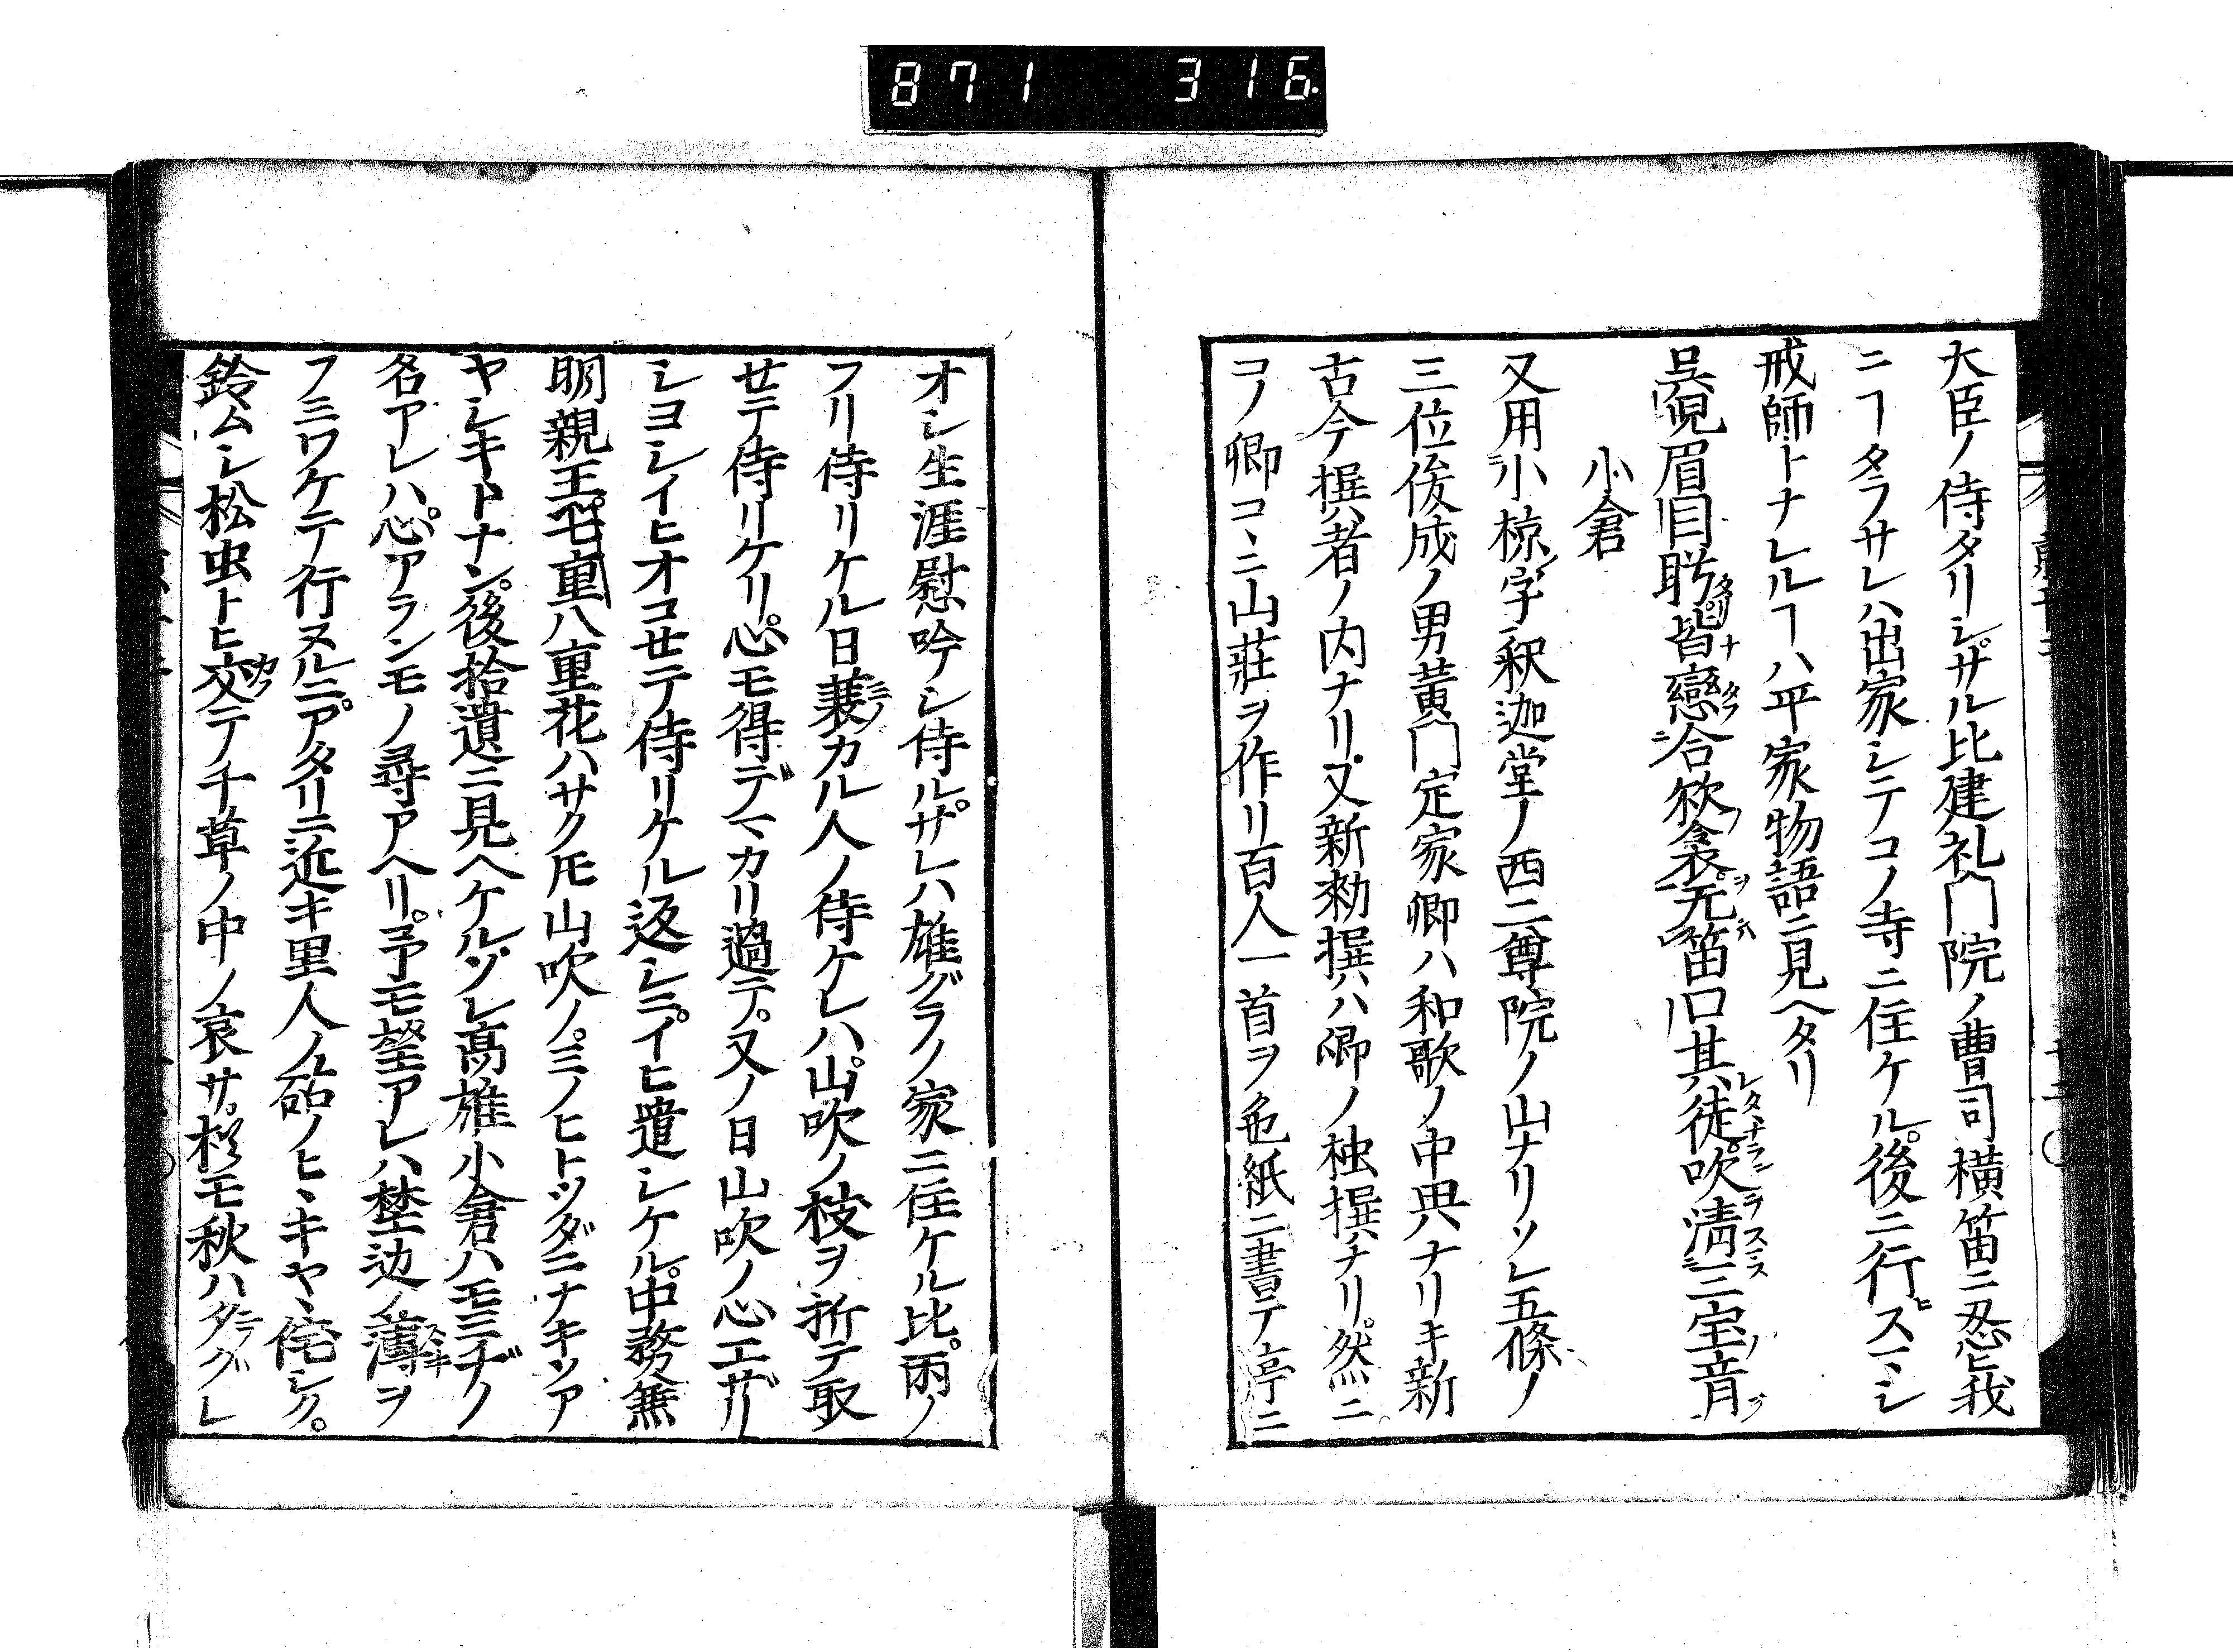 871 316
大臣ノ侍タリシ。サル比建礼門院ノ曹司横笛ニ忍ヒ我
ニヿタラサレハ出家シテコノ寺ニ住ケル。後ニ行ヒスマシ
戒師トナレルヿハ平家物語ニ見ヘタリ
呉児眉目聘皆戀合欸衾無笛旧其徒吹淸三宝音
小倉
又用小椋字釈迦堂ノ西二尊院ノ山ナリソレ五條ノ
三位俊成ノ男黄門定家卿ハ和歌ノ中興ナリキ新
古今撰者ノ内ナリ。又新勅撰ハ卿ノ独撰ナリ。然ニ
コノ卿コヽニ山荘ヲ作リ百人一首ヲ色紙ニ書テ亭ニ
オシ生涯慰吟シ侍ル。サレハ雄グラノ家ニ住ケル比。雨ノ
フリ侍リケル日蓑カル人ノ侍ケレハ。山吹ノ枝ヲ折テ取
セテ侍リケリ。心モ得デマカリ過テ。又ノ日山吹ノ心エザリ
シヨシイヒオコセテ侍リケル返シニ。イヒ遣シケル。中務兼
明親王。七重八重花ハサク𪜈山吹ノ。ミノヒトツダニナキソア
ヤシキトナン。後拾遺ニ見ヘケル。ソレ高雄小倉ハモミヂノ
名アレハ。心アランモノ尋アヘリ。予モ望アレハ埜辺ノ薄ヲ
フミワケテ行ヌルニ。アタリニ近キ里人ノ砧ノヒヽキヤヽ侘シク。
鈴ムシ松虫トヒ交テノ千草ノ中ノ哀サ。杉モ秋ハタグレ